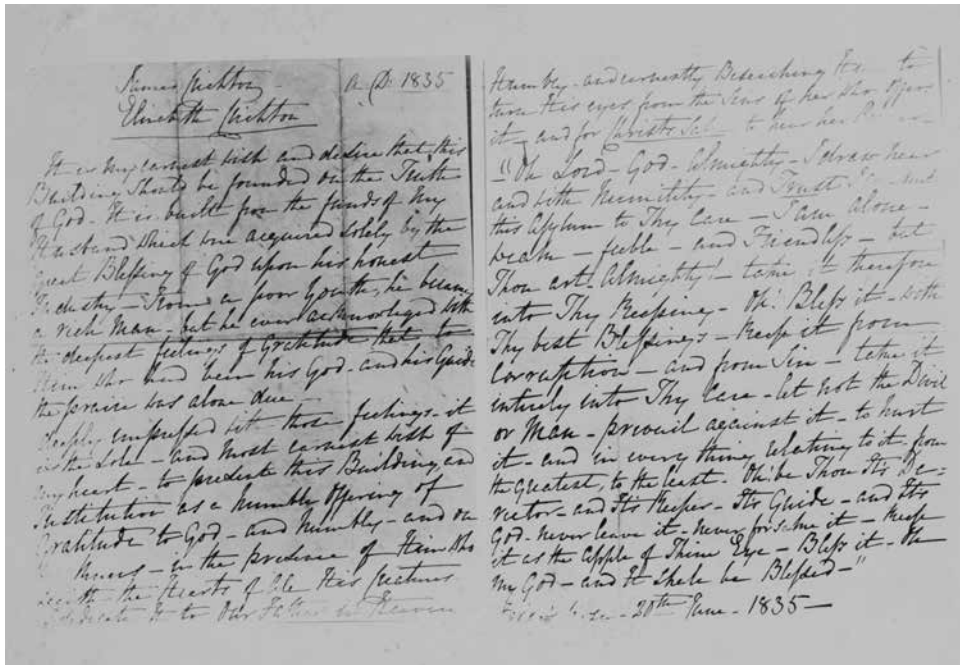 James Crichton A.D. 1835
Elizabeth Crichton
It is my earnest wish and desire that this
Building should be founded on the Truth
of God. It is built from the funds of my
Husband which were acquired solely by the
great Blessing of God upon his honest
Industry - From a poor Youth, he became
a rich Man - but he ever acknowledged with
the deepest feelings of Gratitude that to
Him who had been his God - and his Guide
the praise was alone due -
Deeply impressed with those feelings - it
is the Sole - and most earnest wish of
my heart - to present this Building and
Institution as a humble offering of
Gratitude to God - and humbly - and on
knees - in the presence of Him who
the Hearts of all His Creatures
dedicate It to Our Father in Heaven
Humbly - and earnestly Beseeching Him to
turn His eyes from the Sins of her who offers
it - and for Christs Sake to hear her
"Oh Lord - God - Almighty - I draw near
and with Humility - and Trust
this Asylum to Thy Care - I am alone -
weak - feeble - and Friendless - but
Thou art Almighty! - take it therefore
into Thy Keeping - Oh! Bless it - with
Thy best Blessings - Keep it from
Corruption - and from Sin - take it
entirely into Thy Care - let not the Devil
or Man - prevail against it - to hurt
it - and in every thing relating to it - from
the greatest, to the least - Oh! be Thou Its Di=
rector - and Its Keeper - Its Guide - and Its
God - never leave it - never forsake it - Keep
it as the apple of Thine Eye - Bless it - Oh
my God - and It shall be Blessed -"
20th June - 1835 -